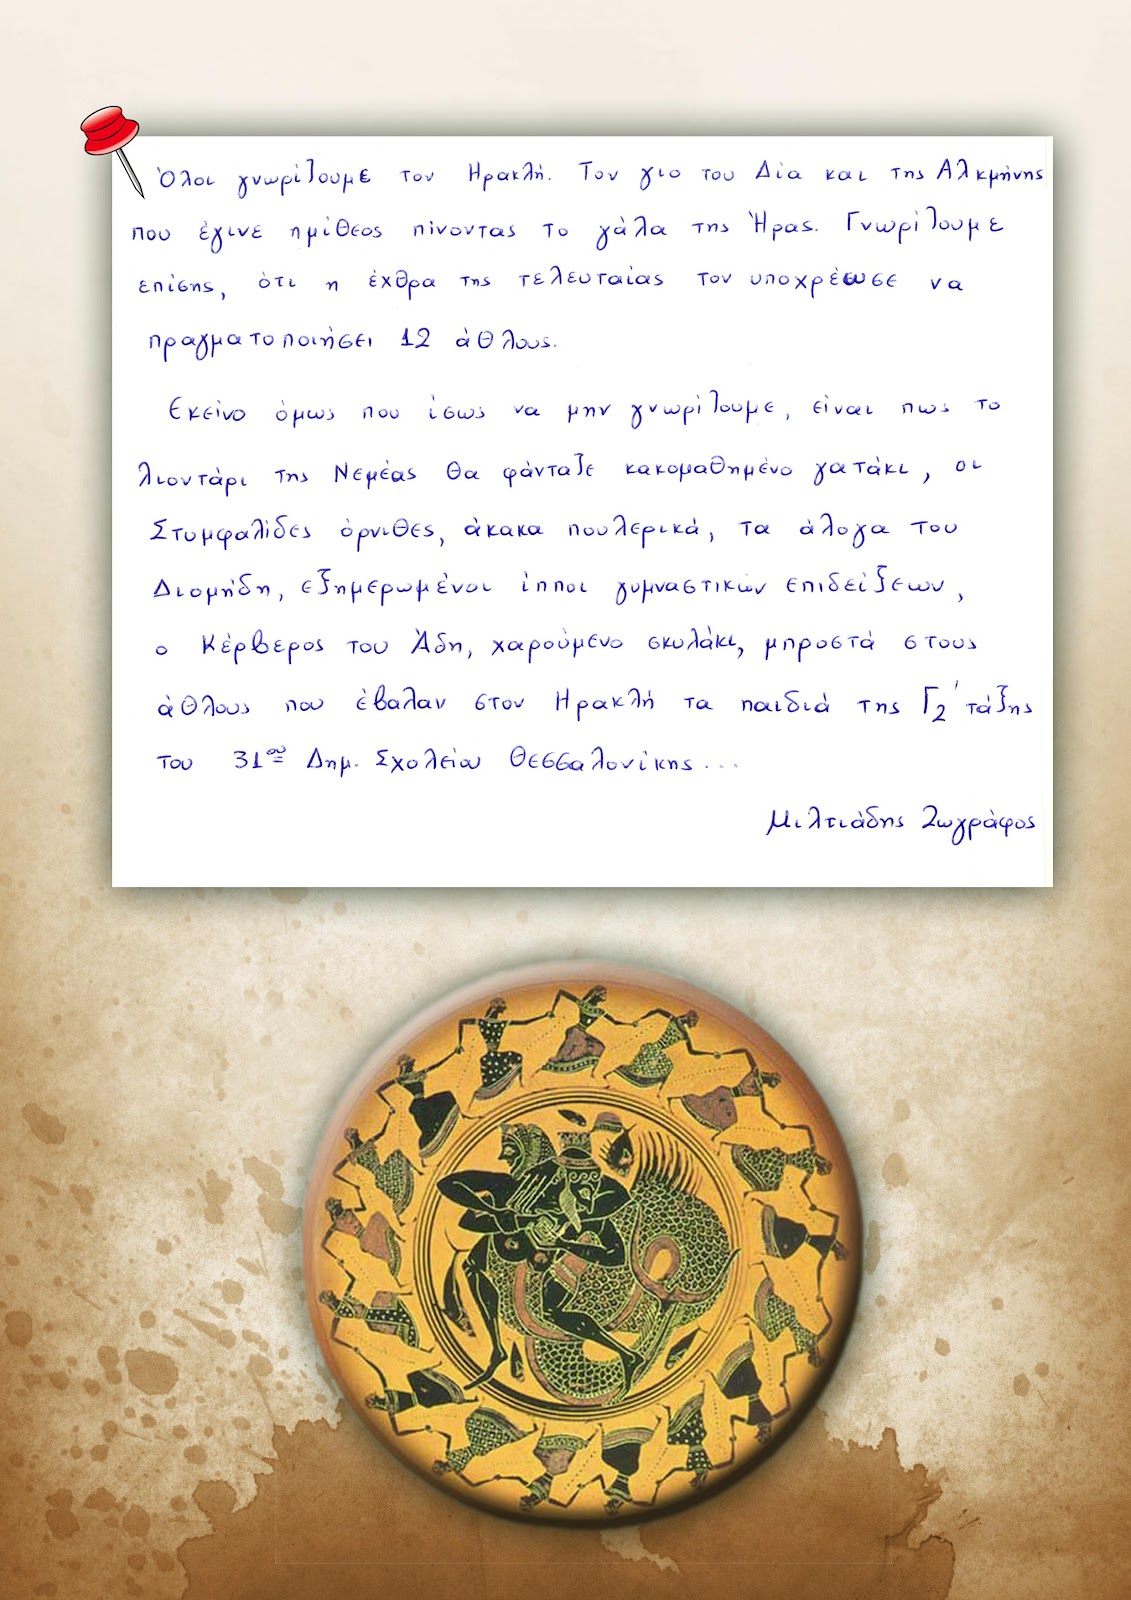 Όλοι γνωρίζουμε τον Ηρακλή. Τον γιο του Δία και της Αλκμήνης
που έγινε ημίθεος πίνοντας το γάλα της Ήρας. Γνωρίζουμε
επίσης, ότι η έχθρα της τελευταίας τον υποχρέωσε να
πραγματοποιήσει 12 άθλους.
Εκείνο όμως που ίσως να μην γνωρίζουμε, είναι πως το
λιοντάρι της Νεμέας θα φάνταζε κακομαθημένο γατάκι, οι
Στυμφαλίδες όρνιθες, άκακα πουλερικά, τα άλογα του
Διομήδη, εξημερωμένοι ίπποι γυμναστικών επιδείξεων,
ο Κέρβερος του Άδη, χαρούμενο σκυλάκι, μπροστά στους
άθλους που έβαλαν στον Ηρακλή τα παιδιά της Γ2' τάξης
του 31ου Δημ. Σχολείου Θεσσαλονίκης...
Μιλτιάδης Ζωγράφος